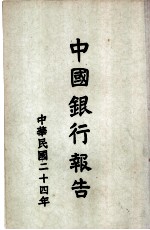 中國銀行報告
中華民國二十四年